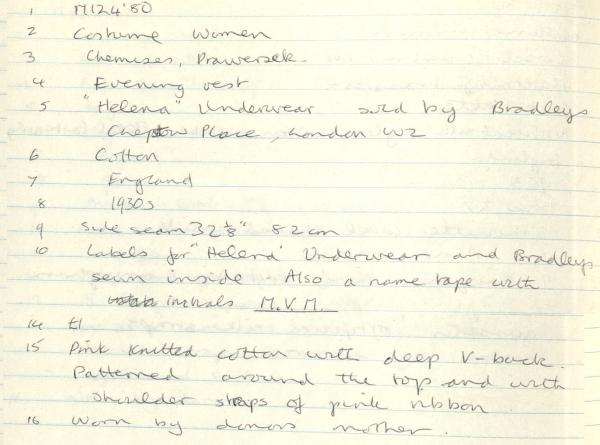 1 M124'80
2 Costume Women
3 Chemises, Drawers etc.
4 Evening vest
5 "Helena" Underwear sold by Bradleys
Chepstow Place, London W2
6 Cotton
7 England
8 1930s
9 Side seam 32 1/8" 82cm
10 Labels for "Helena" Underwear and Bradleys
sewn inside. Also a name tape with
initials M.V.M.
14 t1
15 Pink knitted cotton with deep V-back.
Patterned around the top and with
shoulder straps of pink ribbon.
16 Worn by donors mother.